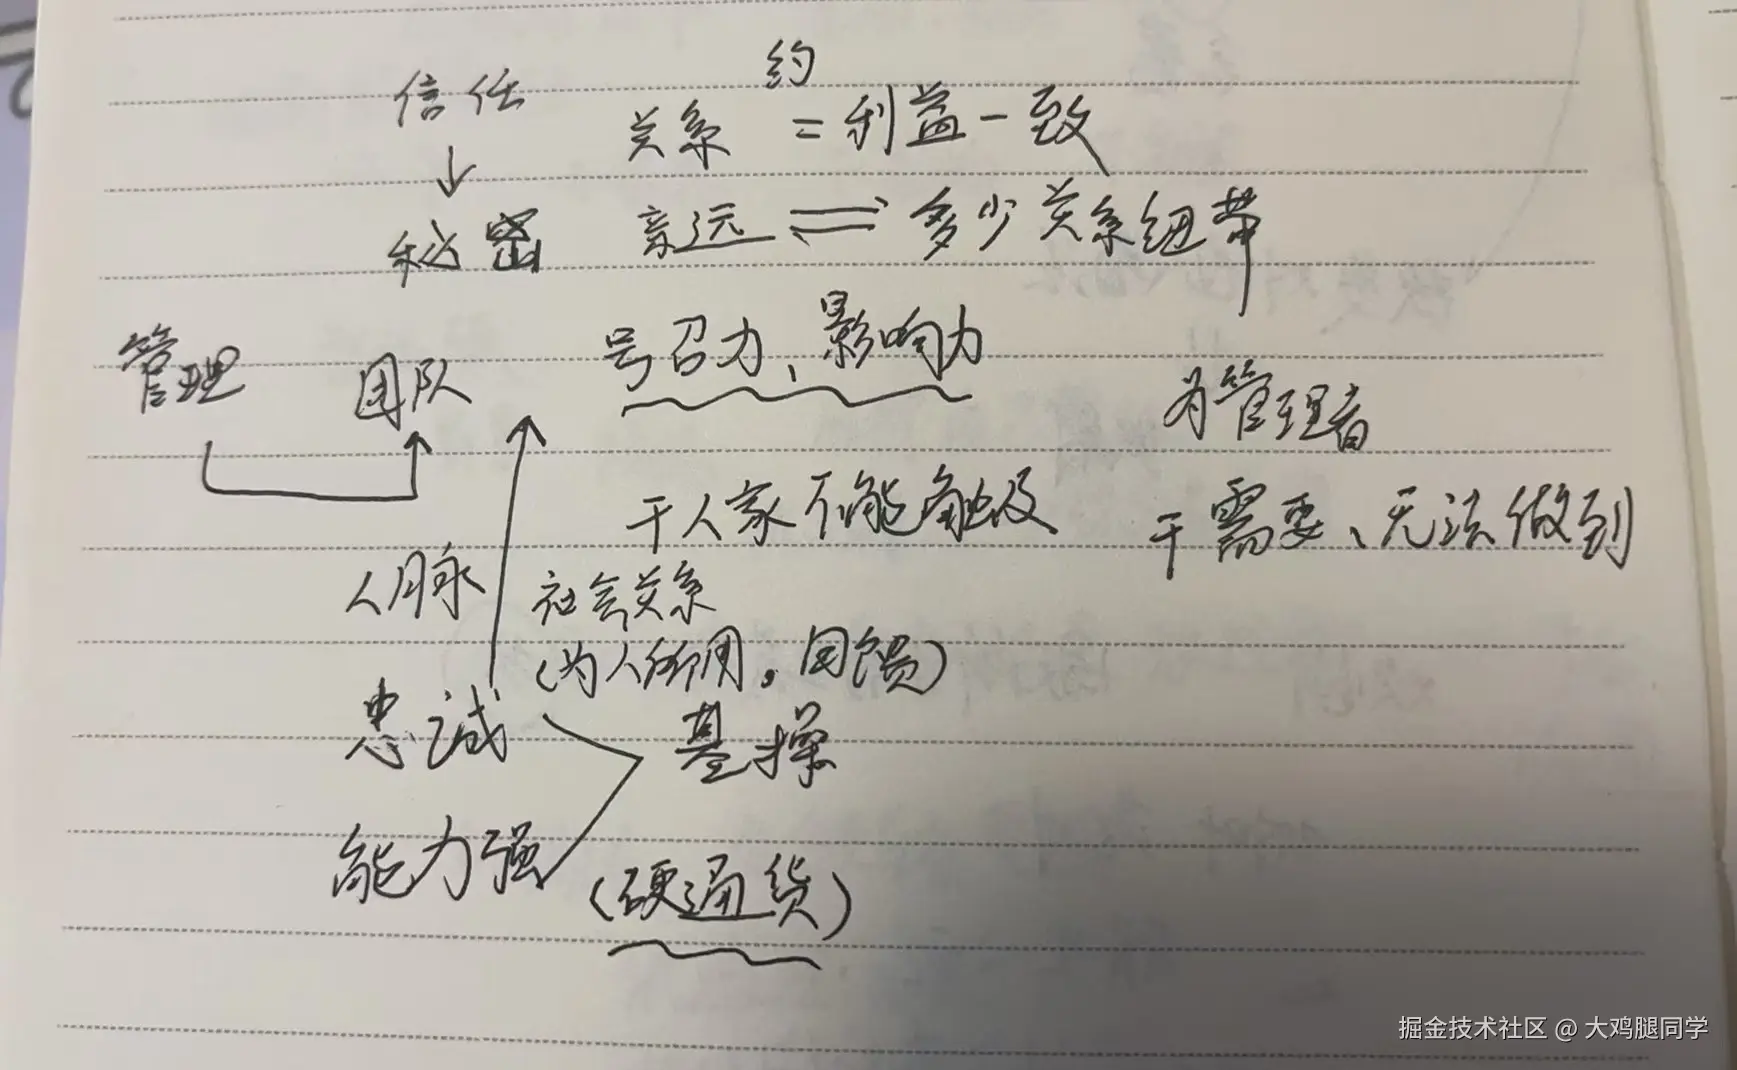 信任
约
关系 = 利益一致
秘密
亲远 ⇌ 多少关系纽带
管理 团队 号召力、影响力
为管理者
干人家不能触及
干需要、无法做到
人脉 社会关系
(为人所用。回馈)
忠诚 基操
能力强 (硬通货)
掘金技术社区 @ 大鸡腿同学